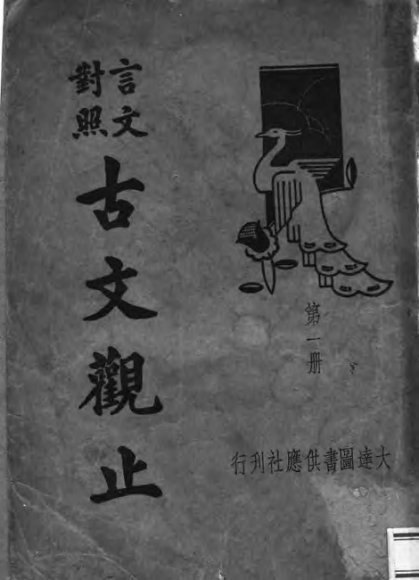 言文
對照
古文觀止
第一册
大達圖書供應社刊行